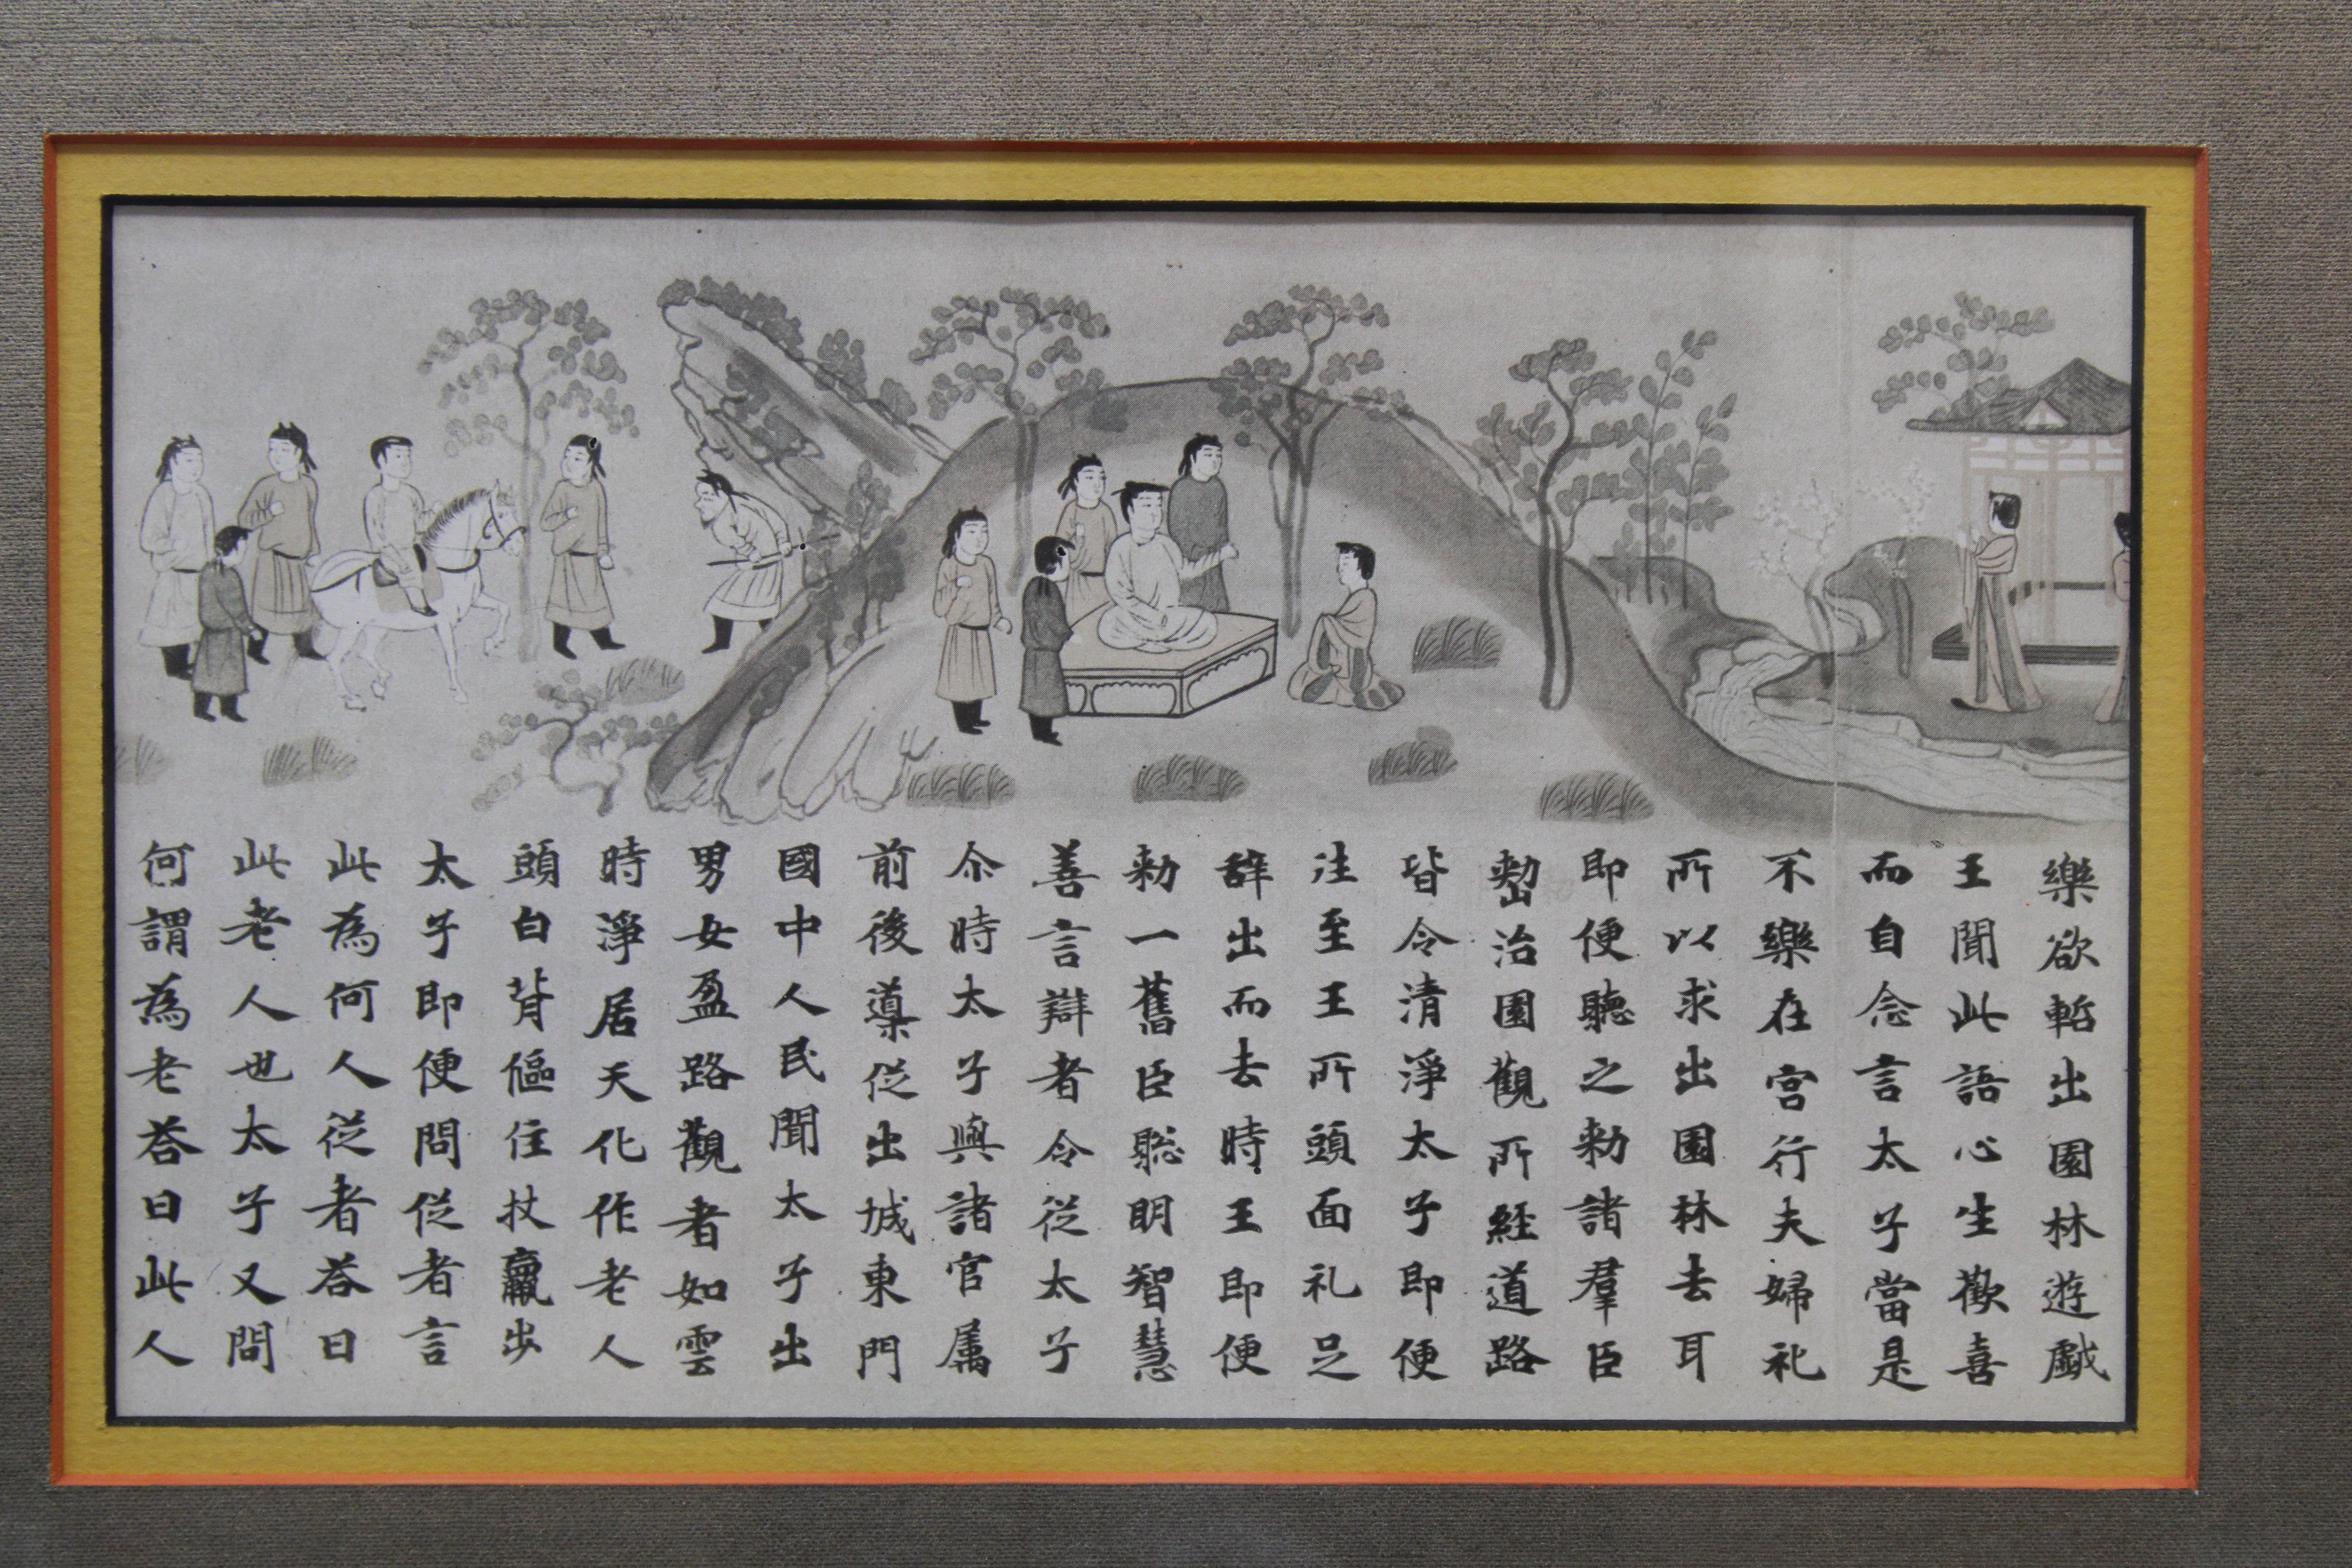 樂欲暫出園林遊戯
王聞此語心生歡喜
而自念言太子當是
不樂在宮行夫婦礼
所以求出園林去耳
即便聽之勅諸羣臣
勅治園觀所経道路
皆令清淨太子即便
往至王所頭面礼足
辞出而去時王即便
勅一舊臣聡明智慧
善言辯者令従太子
尒時太子與諸官属
前後導従出城東門
國中人民聞太子出
男女盈路觀者如雲
時淨居天化作老人
頭白背傴住杖羸歩
太子即便問従者言
此為何人従者荅曰
此老人也太子又問
何謂為老荅曰此人